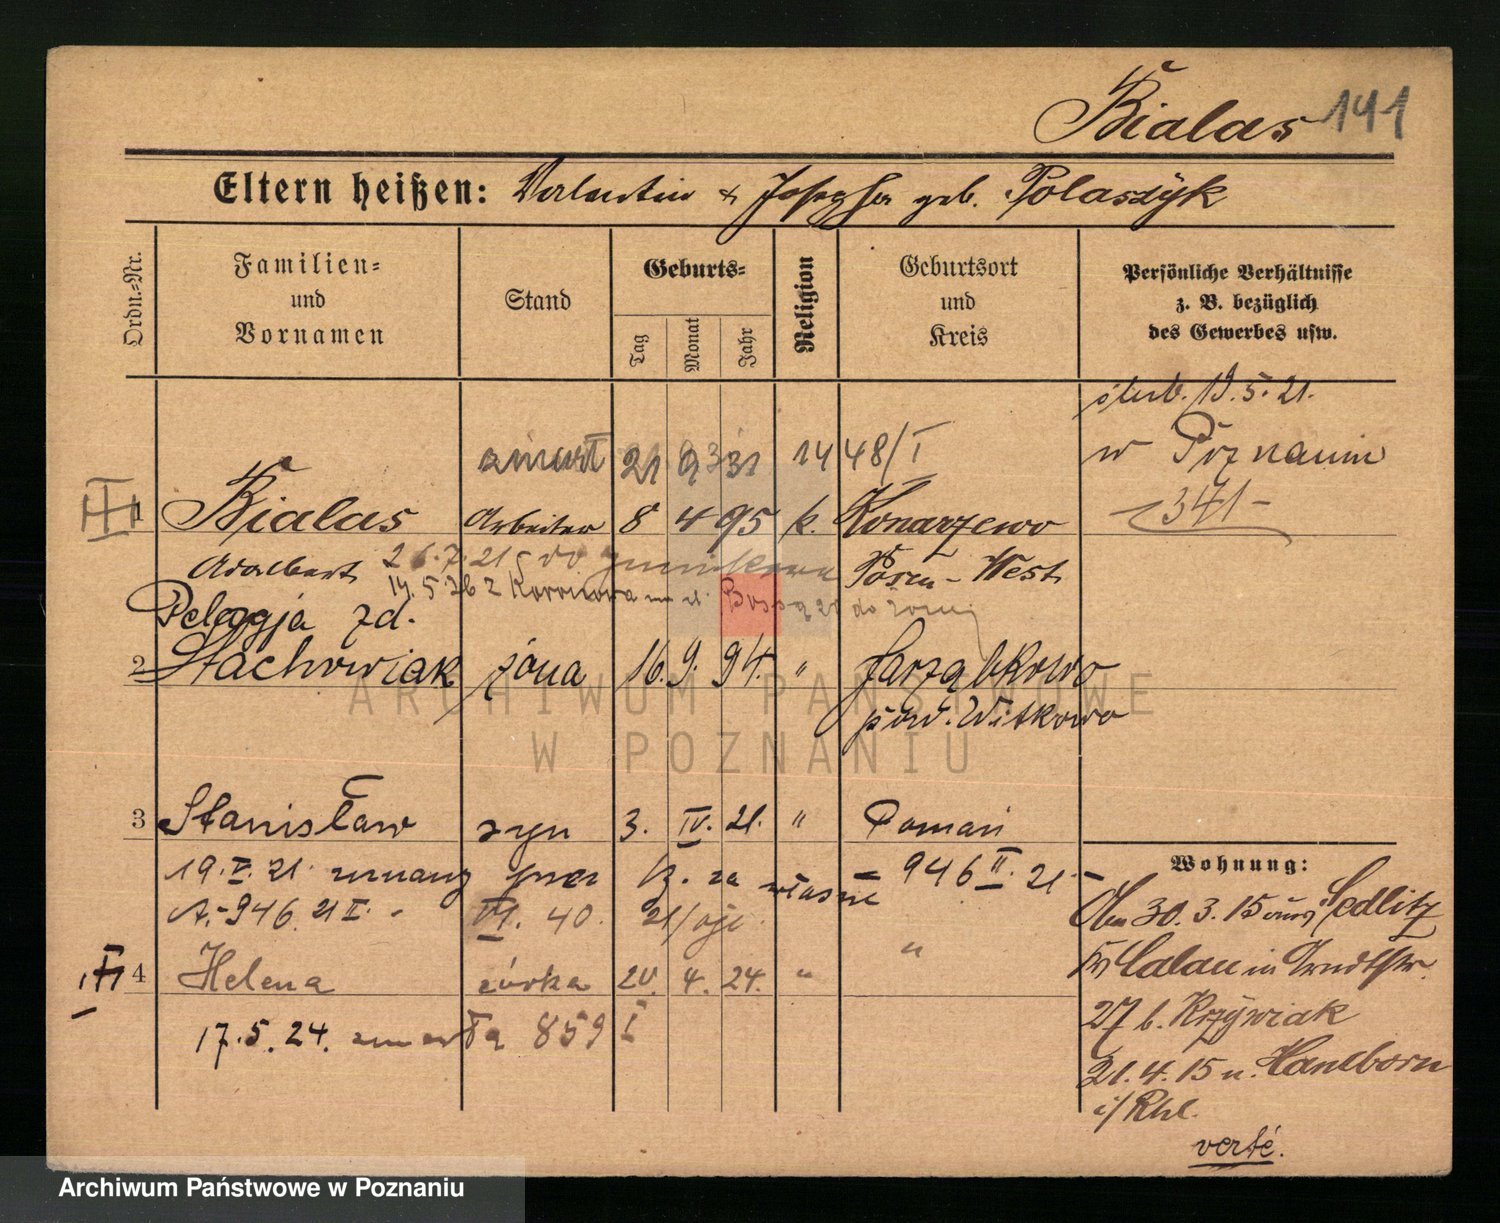 Bialas 141
Eltern heißen: Valentin & Josepha geb. Polaszyk
Ordn.-Nr.
Familien= und Vornamen
Stand
Geburts=
Tag
Monat
Jahr
Religion
Geburtsort und Kreis
Persönliche Verhältnisse
z. B. bezüglich
des Gewerbes usw.
ślub. 19.5.21.
w Poznaniu
341-
zmarł 21 9 31 1448/I
1 Bialas Arbeiter 8 4 95 k. Konarzewo
Adalbert Posen-West
26.7.21
14.5.26 z Koronowa
Pelagja zd.
2 Stachowiak żona 16. 9. 94. " Jarząbkowo
pow. Witkowo
3 Stanisław syn 3. IV. 21. " Poznań
19.V.21. uznany przez za własne = 946 II. 21.-
A.-946.21 II. - VI. 40.
4 Helena córka 20. 4. 24. " "
17.5.24. zmarła 859 I
Wohnung:
30.3.15 Sedlitz
Calau in
27 b. Krzywiak
21.4.15 n. Hamborn
i/Rhl.
verte.
ARCHIWUM PAŃSTWOWE
W POZNANIU
Archiwum Państwowe w Poznaniu